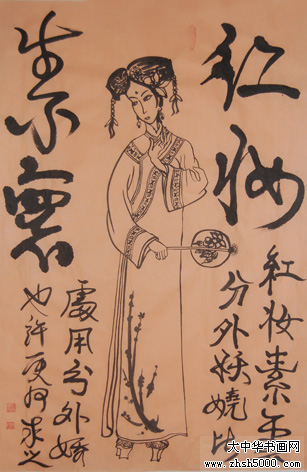 红妆
素裹
紅妆素
分外妖嬈此
處用分外嬌
也許更何求之
大中华书画网
www.zhsh5000.com